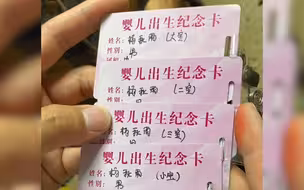 婴儿出生纪念卡
姓名：杨秋雨（大宝）
性别：男
婴儿出生纪念卡
姓名：杨秋雨（二宝）
婴儿出生纪念卡
姓名：杨秋雨（三宝）
婴儿出生纪念卡
姓名：杨秋雨（小宝）
男